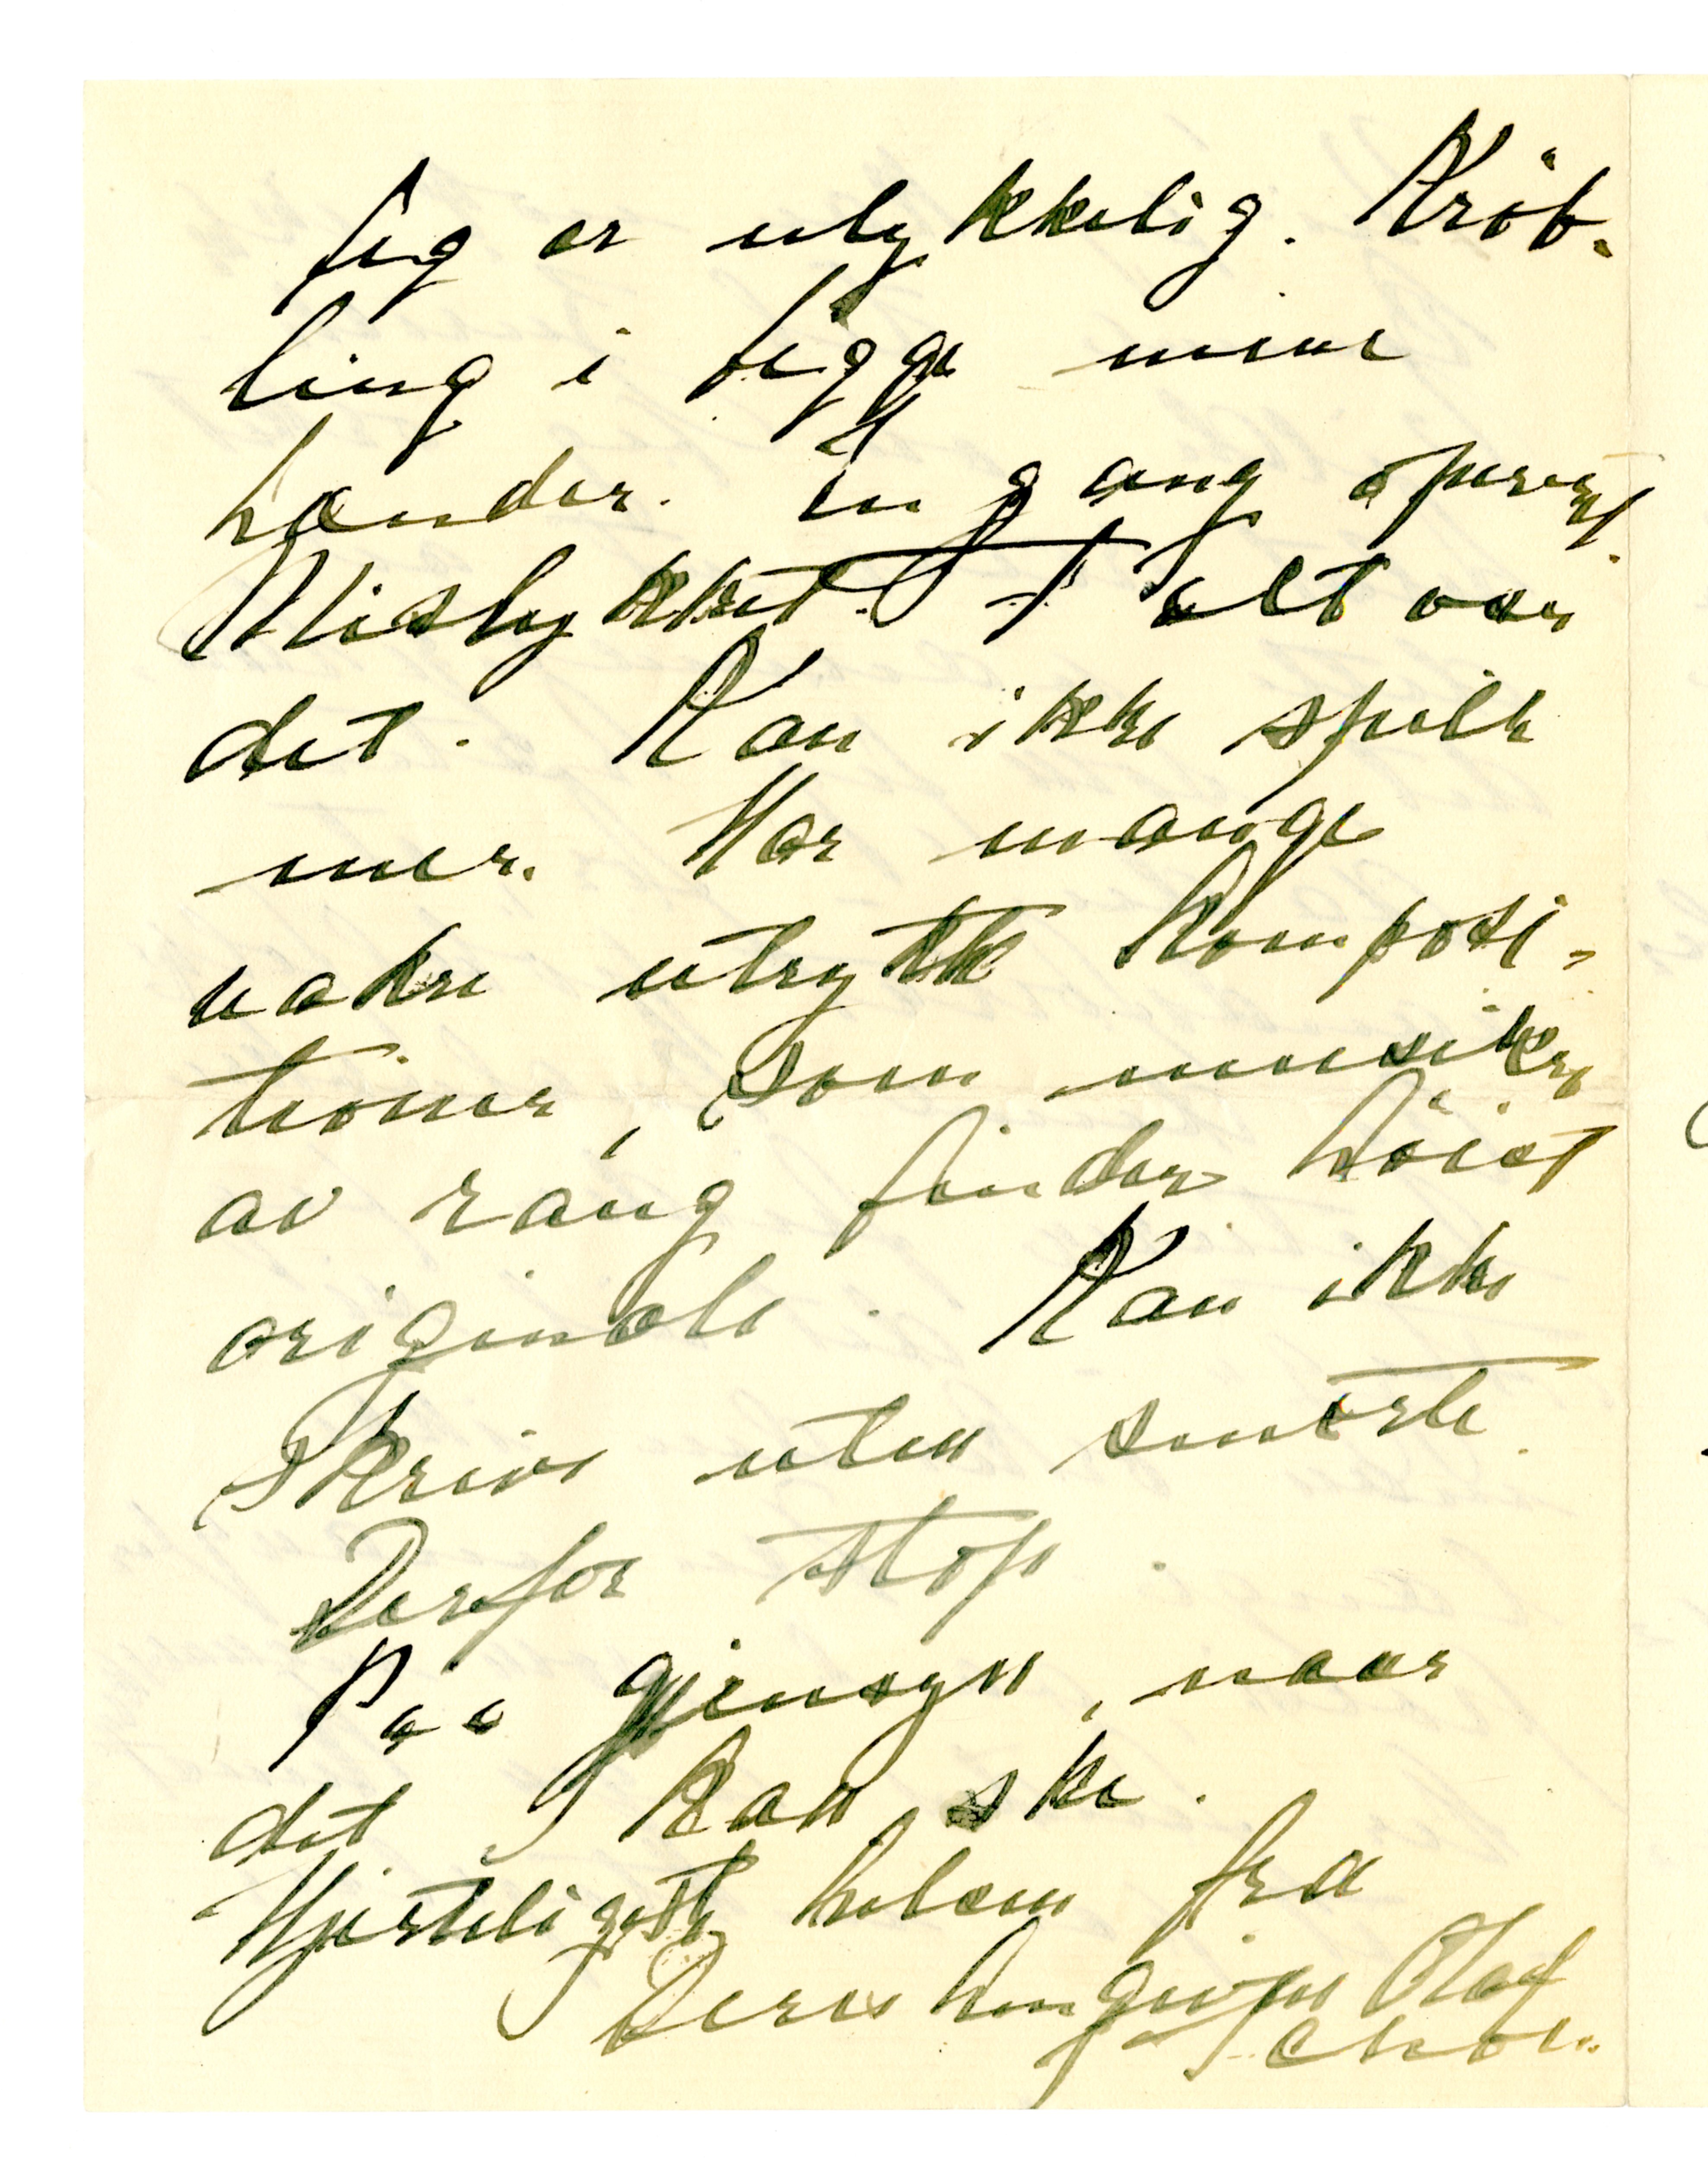 Jeg er ulykkelig. Krøb-
ling i begge mine
hænder. En gang operert.
Mislykket. T alt var
det. Kan ikke spille
mer. Har mange
vakre utrykte komposi-
tioner, som musikere
av rang finder høist
originale. Kan ikke
skrive uten smerte.
Derfor stop.
Paa gjensyn, naar
det kan ske.
Hjerteligste hilsen fra
Deres hengivne Olaf